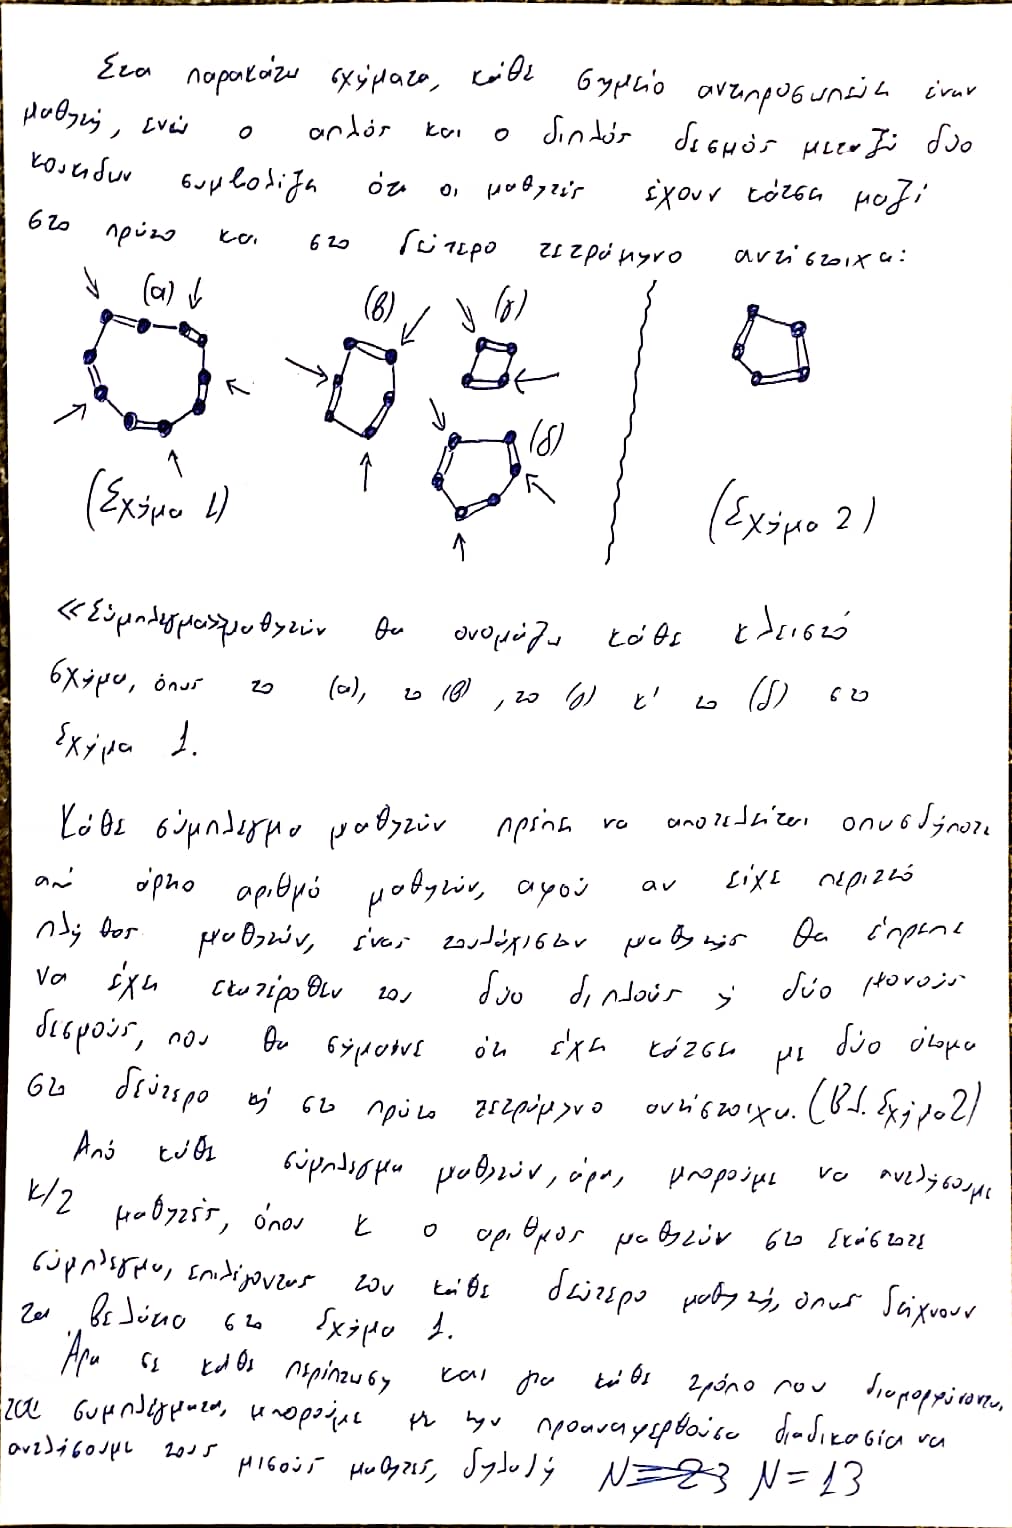 Στα παρακάτω σχήματα, κάθε σημείο αντιπροσωπεύει έναν
μαθητή, ενώ ο απλός και ο διπλός δεσμός μεταξύ δύο
κουκιδων συμβολίζει ότι οι μαθητές έχουν κάτσει μαζί
στο πρώτο και στο δεύτερο τετράμηνο αντίστοιχα:
(α) (β) (γ)
(δ)
(Σχήμα 1) (Σχήμα 2)
«Σύμπλεγμα» μαθητών θα ονομάζω κάθε κλειστό
σχήμα, όπως το (α), το (β), το (γ) κ' το (δ) στο
Σχήμα 1.
Κάθε σύμπλεγμα μαθητών πρέπει να αποτελείται οπωσδήποτε
από άρτιο αριθμό μαθητών, αφού αν είχε περιττό
πλήθος μαθητών, ένας τουλάχιστον μαθητής θα έπρεπε
να έχει εκατέρωθεν του δύο διπλούς ή δύο μονούς
δεσμούς, που θα σήμαινε ότι έχει κάτσει με δύο άτομα
στο δεύτερο ή στο πρώτο τετράμηνο αντίστοιχα. (Βλ. Σχήμα 2)
Από κάθε σύμπλεγμα μαθητών, άρα, μπορούμε να αντλήσουμε
κ/2 μαθητές, όπου κ ο αριθμός μαθητών στο εκάστοτε
σύμπλεγμα, επιλέγοντας τον κάθε δεύτερο μαθητή, όπως δείχνουν
τα βελάκια στο Σχήμα 1.
Άρα σε κάθε περίπτωση και για κάθε τρόπο που διαμορφώνονται
τα συμπλέγματα, μπορούμε με την προαναφερθούσα διαδικασία να
αντλήσουμε τους μισούς μαθητές, δηλαδή N=23 N=13